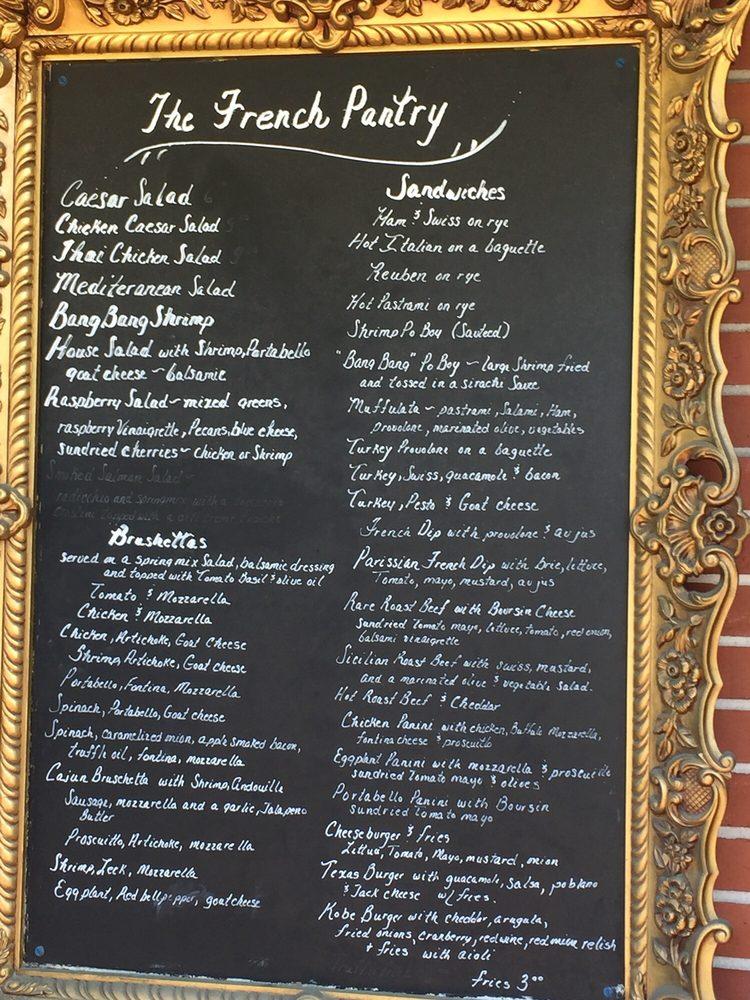 The French Pantry
Caesar Salad
Chicken Caesar Salad
Thai Chicken Salad
Mediteranean Salad
Bang Bang Shrimp
House Salad with Shrimp, Portabello
goat cheese ~ balsamic
Raspberry Salad ~ mixed greens,
raspberry Vinaigrette, Pecans, blue cheese,
sundried cherries ~ chicken or Shrimp
Smoked Salmon Salad ~
radicchio and springmix with a
topped with a
Brushettas
served on a spring mix Salad, balsamic dressing
and topped with Tomato Basil & olive oil
Tomato & Mozzarella
Chicken & Mozzarella
Chicken, Artichoke, Goat Cheese
Shrimp, Artichoke, Goat cheese
Portabello, Fontina, Mozzarella
Spinach, Portabello, Goat cheese
Spinach, caramelized onion, apple smoked bacon,
truffle oil, fontina, mozzarella
Cajun Bruschetta with Shrimp, Andouille
Sausage, mozzarella and a garlic, Jalapeno
Butter
Proscuitto, Artichoke, mozzarella
Shrimp, Leek, Mozzarella
Eggplant, Red bell pepper, goat cheese
Sandwiches
Ham & Swiss on rye
Hot Italian on a baguette
Reuben on rye
Hot Pastrami on rye
Shrimp Po Boy (Sauteed)
"Bang Bang" Po Boy ~ large Shrimp fried
and tossed in a sirachi Sauce
Muffulata ~ pastrami, Salami, Ham,
provolone, marinated olive, vegetables
Turkey Provolone on a baguette
Turkey, Swiss, guacamole & bacon
Turkey, Pesto & Goat cheese
French Dip with provolone & au jus
Parissian French Dip with brie, lettuce,
Tomato, mayo, mustard, au jus
Rare Roast Beef with Boursin Cheese
sundried tomato mayo, lettuce, tomato, red onion,
balsamic vinaigrette
Sicilian Roast Beef with swiss, mustard,
and a marinated olive & vegetable salad.
Hot Roast Beef & Cheddar
Chicken Panini with chicken, Buffalo Mozzarella,
fontina cheese & proscuitto
Eggplant Panini with mozzarella & proscuitto
sundried Tomato mayo & olives
Portabello Panini with Boursin
sundried tomato mayo
Cheeseburger & fries
Lettuce, Tomato, Mayo, mustard, onion
Texas Burger with guacamole, Salsa, poblano
& Jack cheese w/ fries.
Kobe Burger with cheddar, arugula,
fried onions, cranberry, red wine, red onion relish
+ fries with aioli
fries 3.00